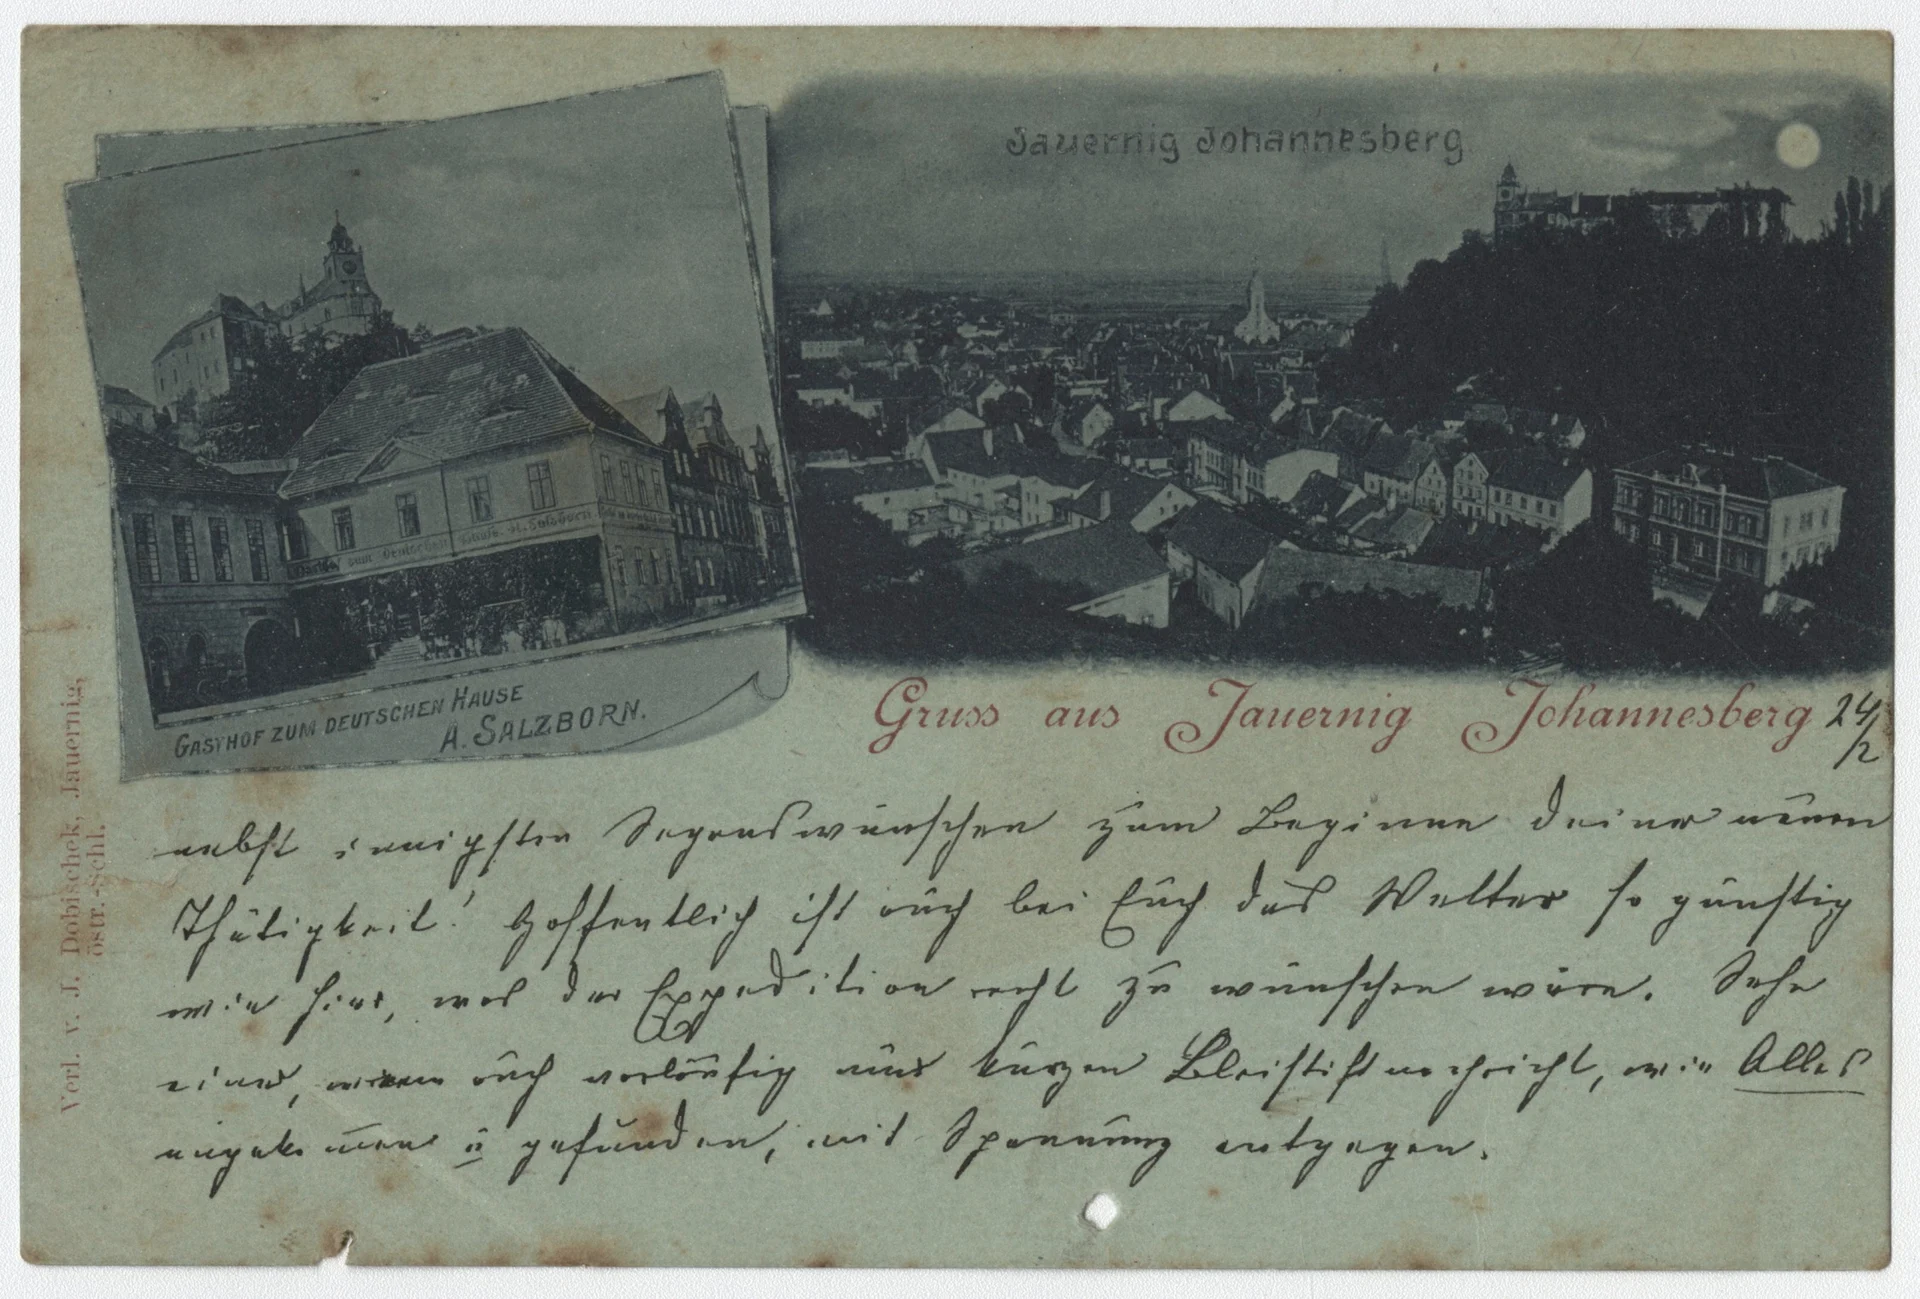 Jauernig Johannesberg
Gasthof zum Deutschen Hause A. Salzborn
GASTHOF ZUM DEUTSCHEN HAUSE
A. SALZBORN.
Gruss aus Jauernig Johannesberg 24/2
nebst innigsten Segenswünschen zum Beginne Deiner neuen
Thätigkeit! Hoffentlich ist auch bei Euch das Wetter so günstig
wie hier, was der Expedition recht zu wünschen wäre. Sehe
einer, wenn auch vorläufig nur kurzen Bleistiftnachricht, wie Alles
u gefunden, mit Spannung entgegen.
Verl. v. J. Dobischek, Jauernig,
östr.-Schl.